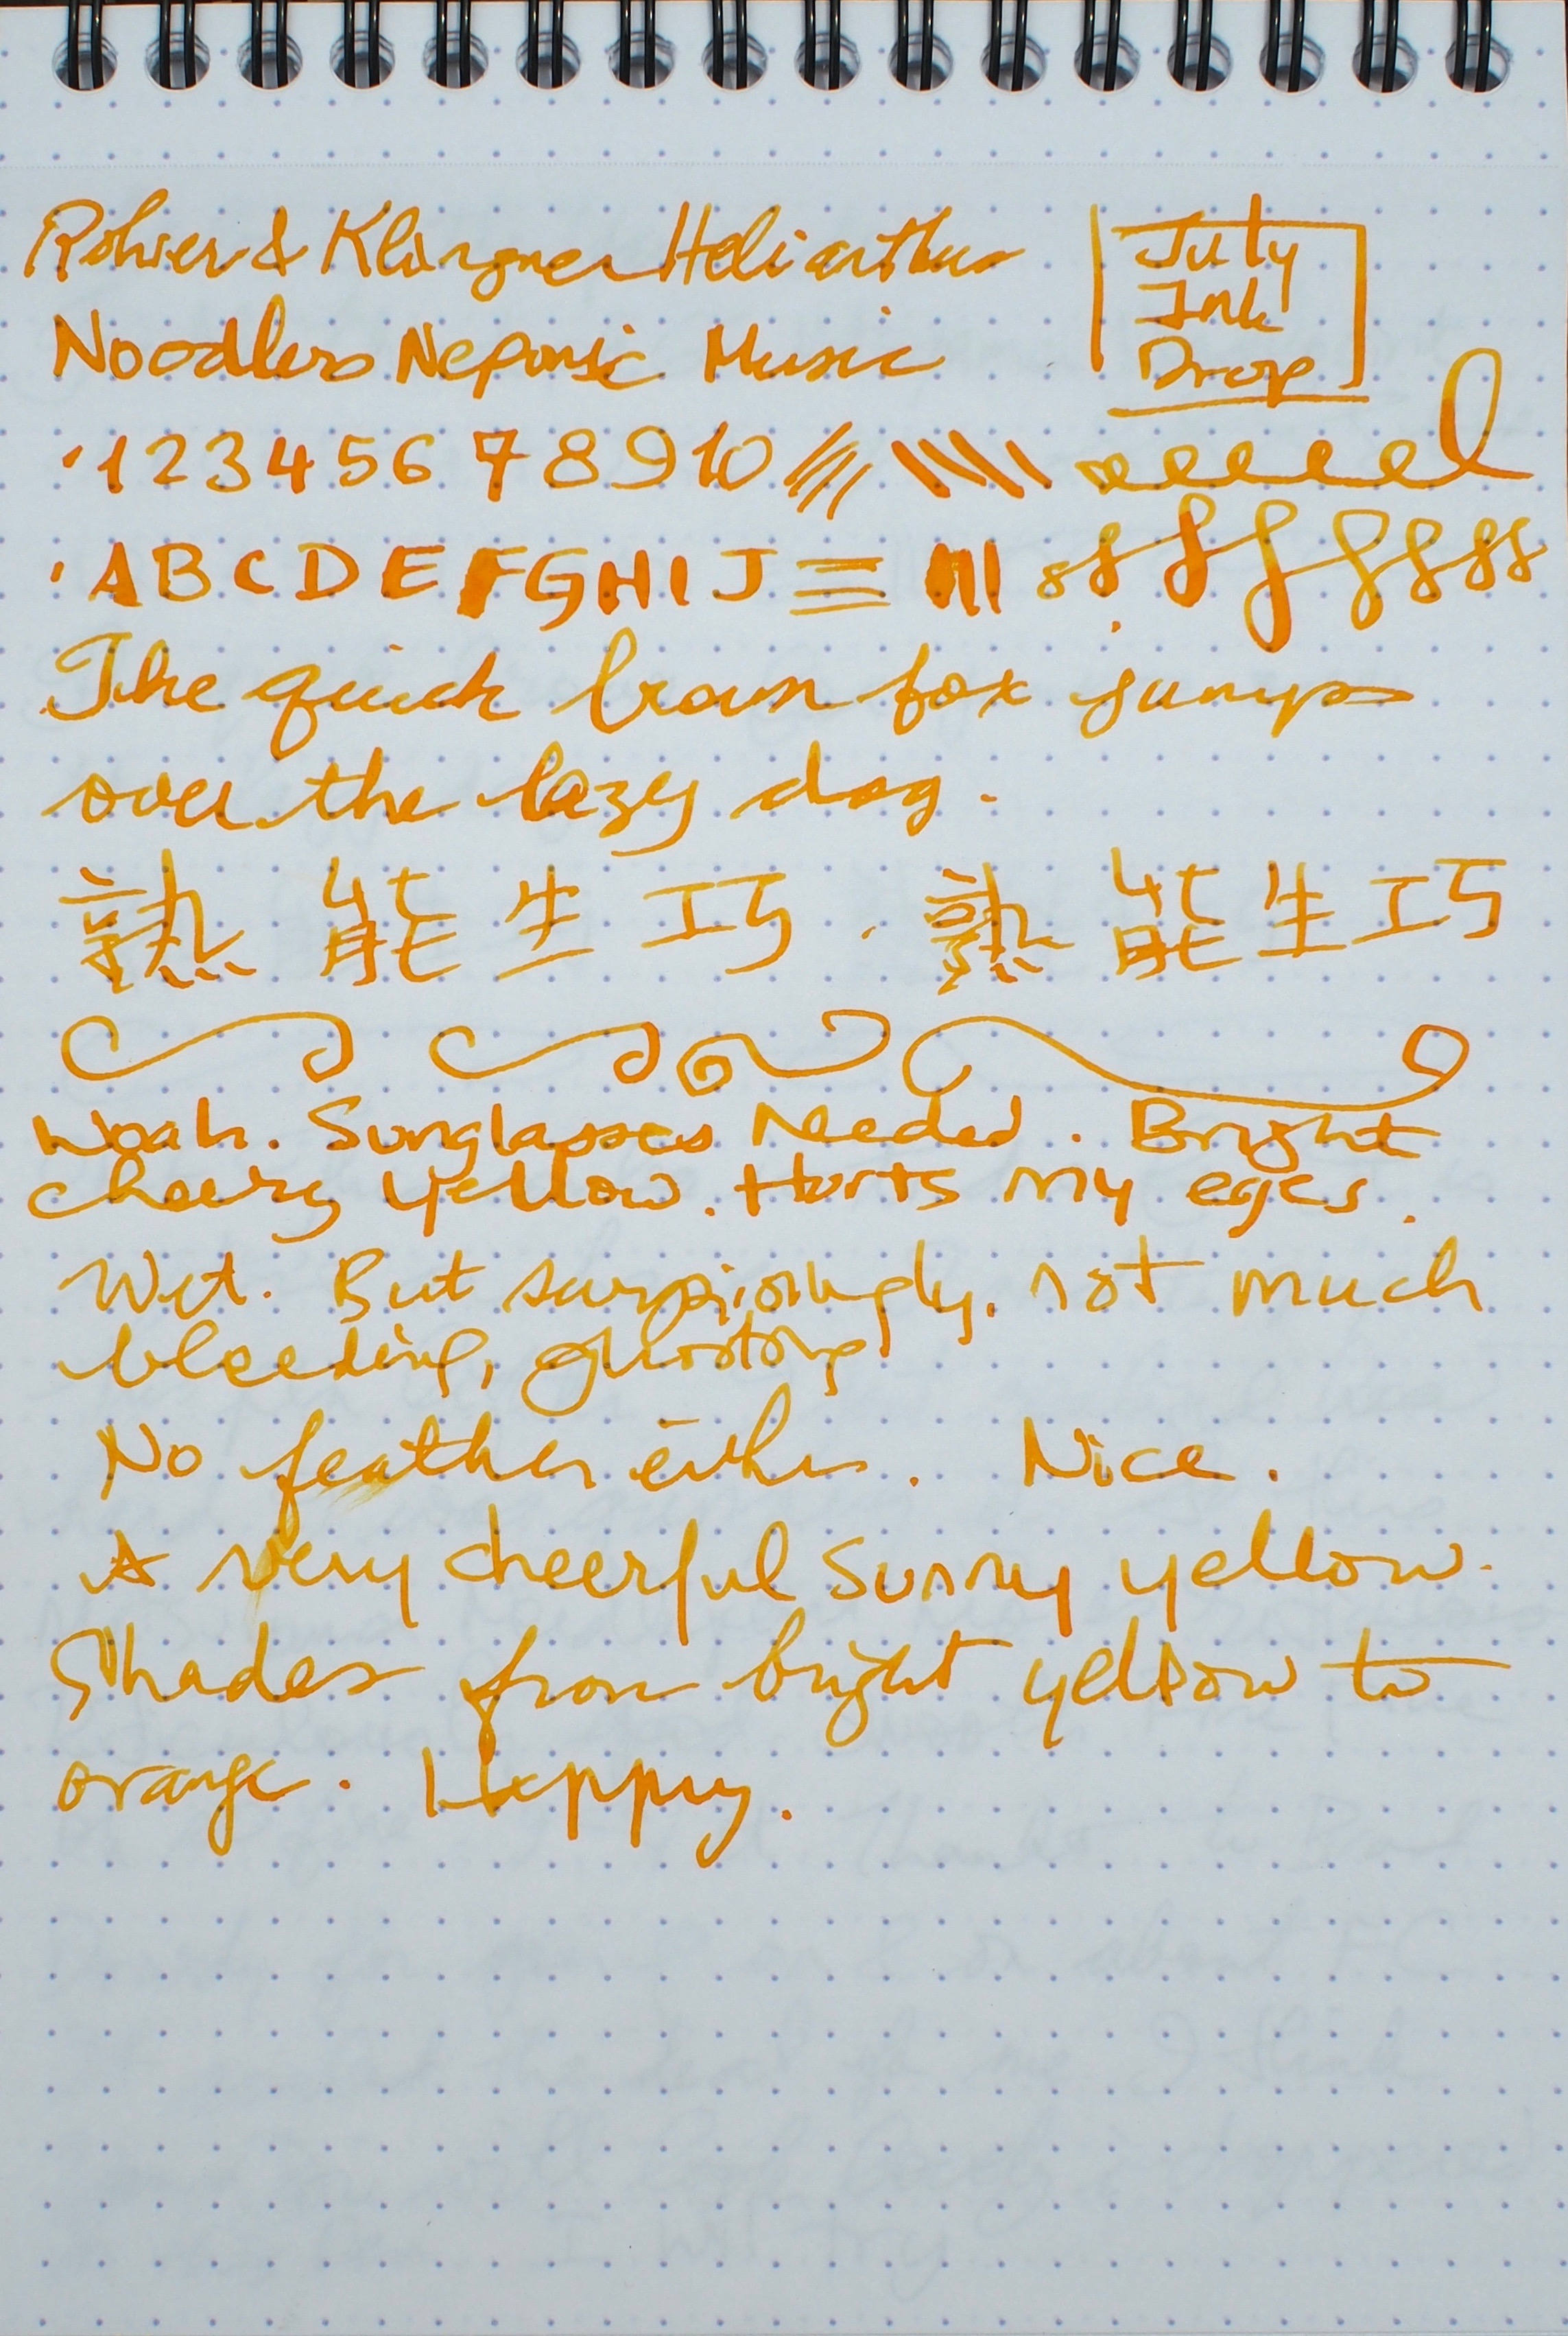 Rohrer & Klingner Helianthus
July
Ink
Drop
Noodlers Neponsic Music
1 2 3 4 5 6 7 8 9 10
A B C D E F G H I J
The quick brown fox jumps
over the lazy dog.
熟能生巧. 熟能生巧
Woah. Sunglasses Needed. Bright
cheery yellow. Hurts my eyes.
Wet. But surprisingly, not much
bleeding, ghosting
No feather either. Nice.
A very cheerful sunny yellow.
Shades from bright yellow to
orange. Happy.